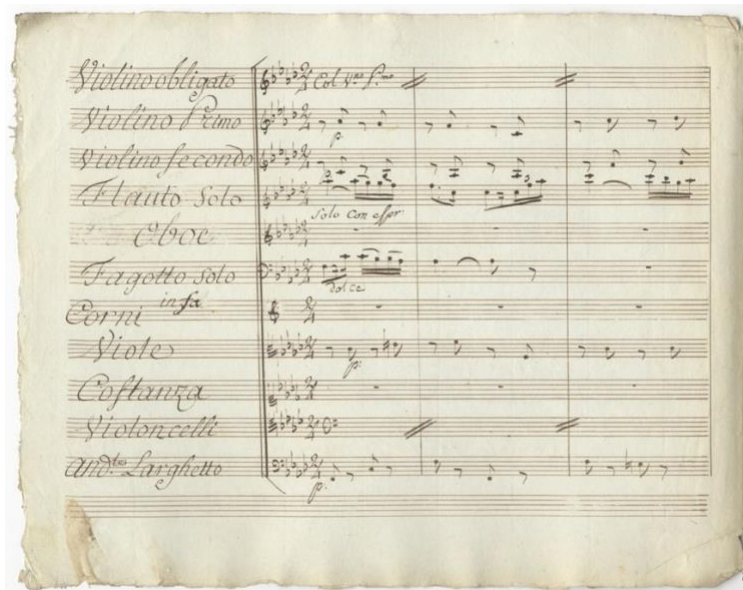 Violino obligato Col Vno Pmo
Violino Primo
p.
Violino secondo
Flauto Solo
Solo Con espr
Oboe
Fagotto Solo
dolce
Corni in fa
Viole
p.
Costanza
Violoncelli
Andte Larghetto
p.